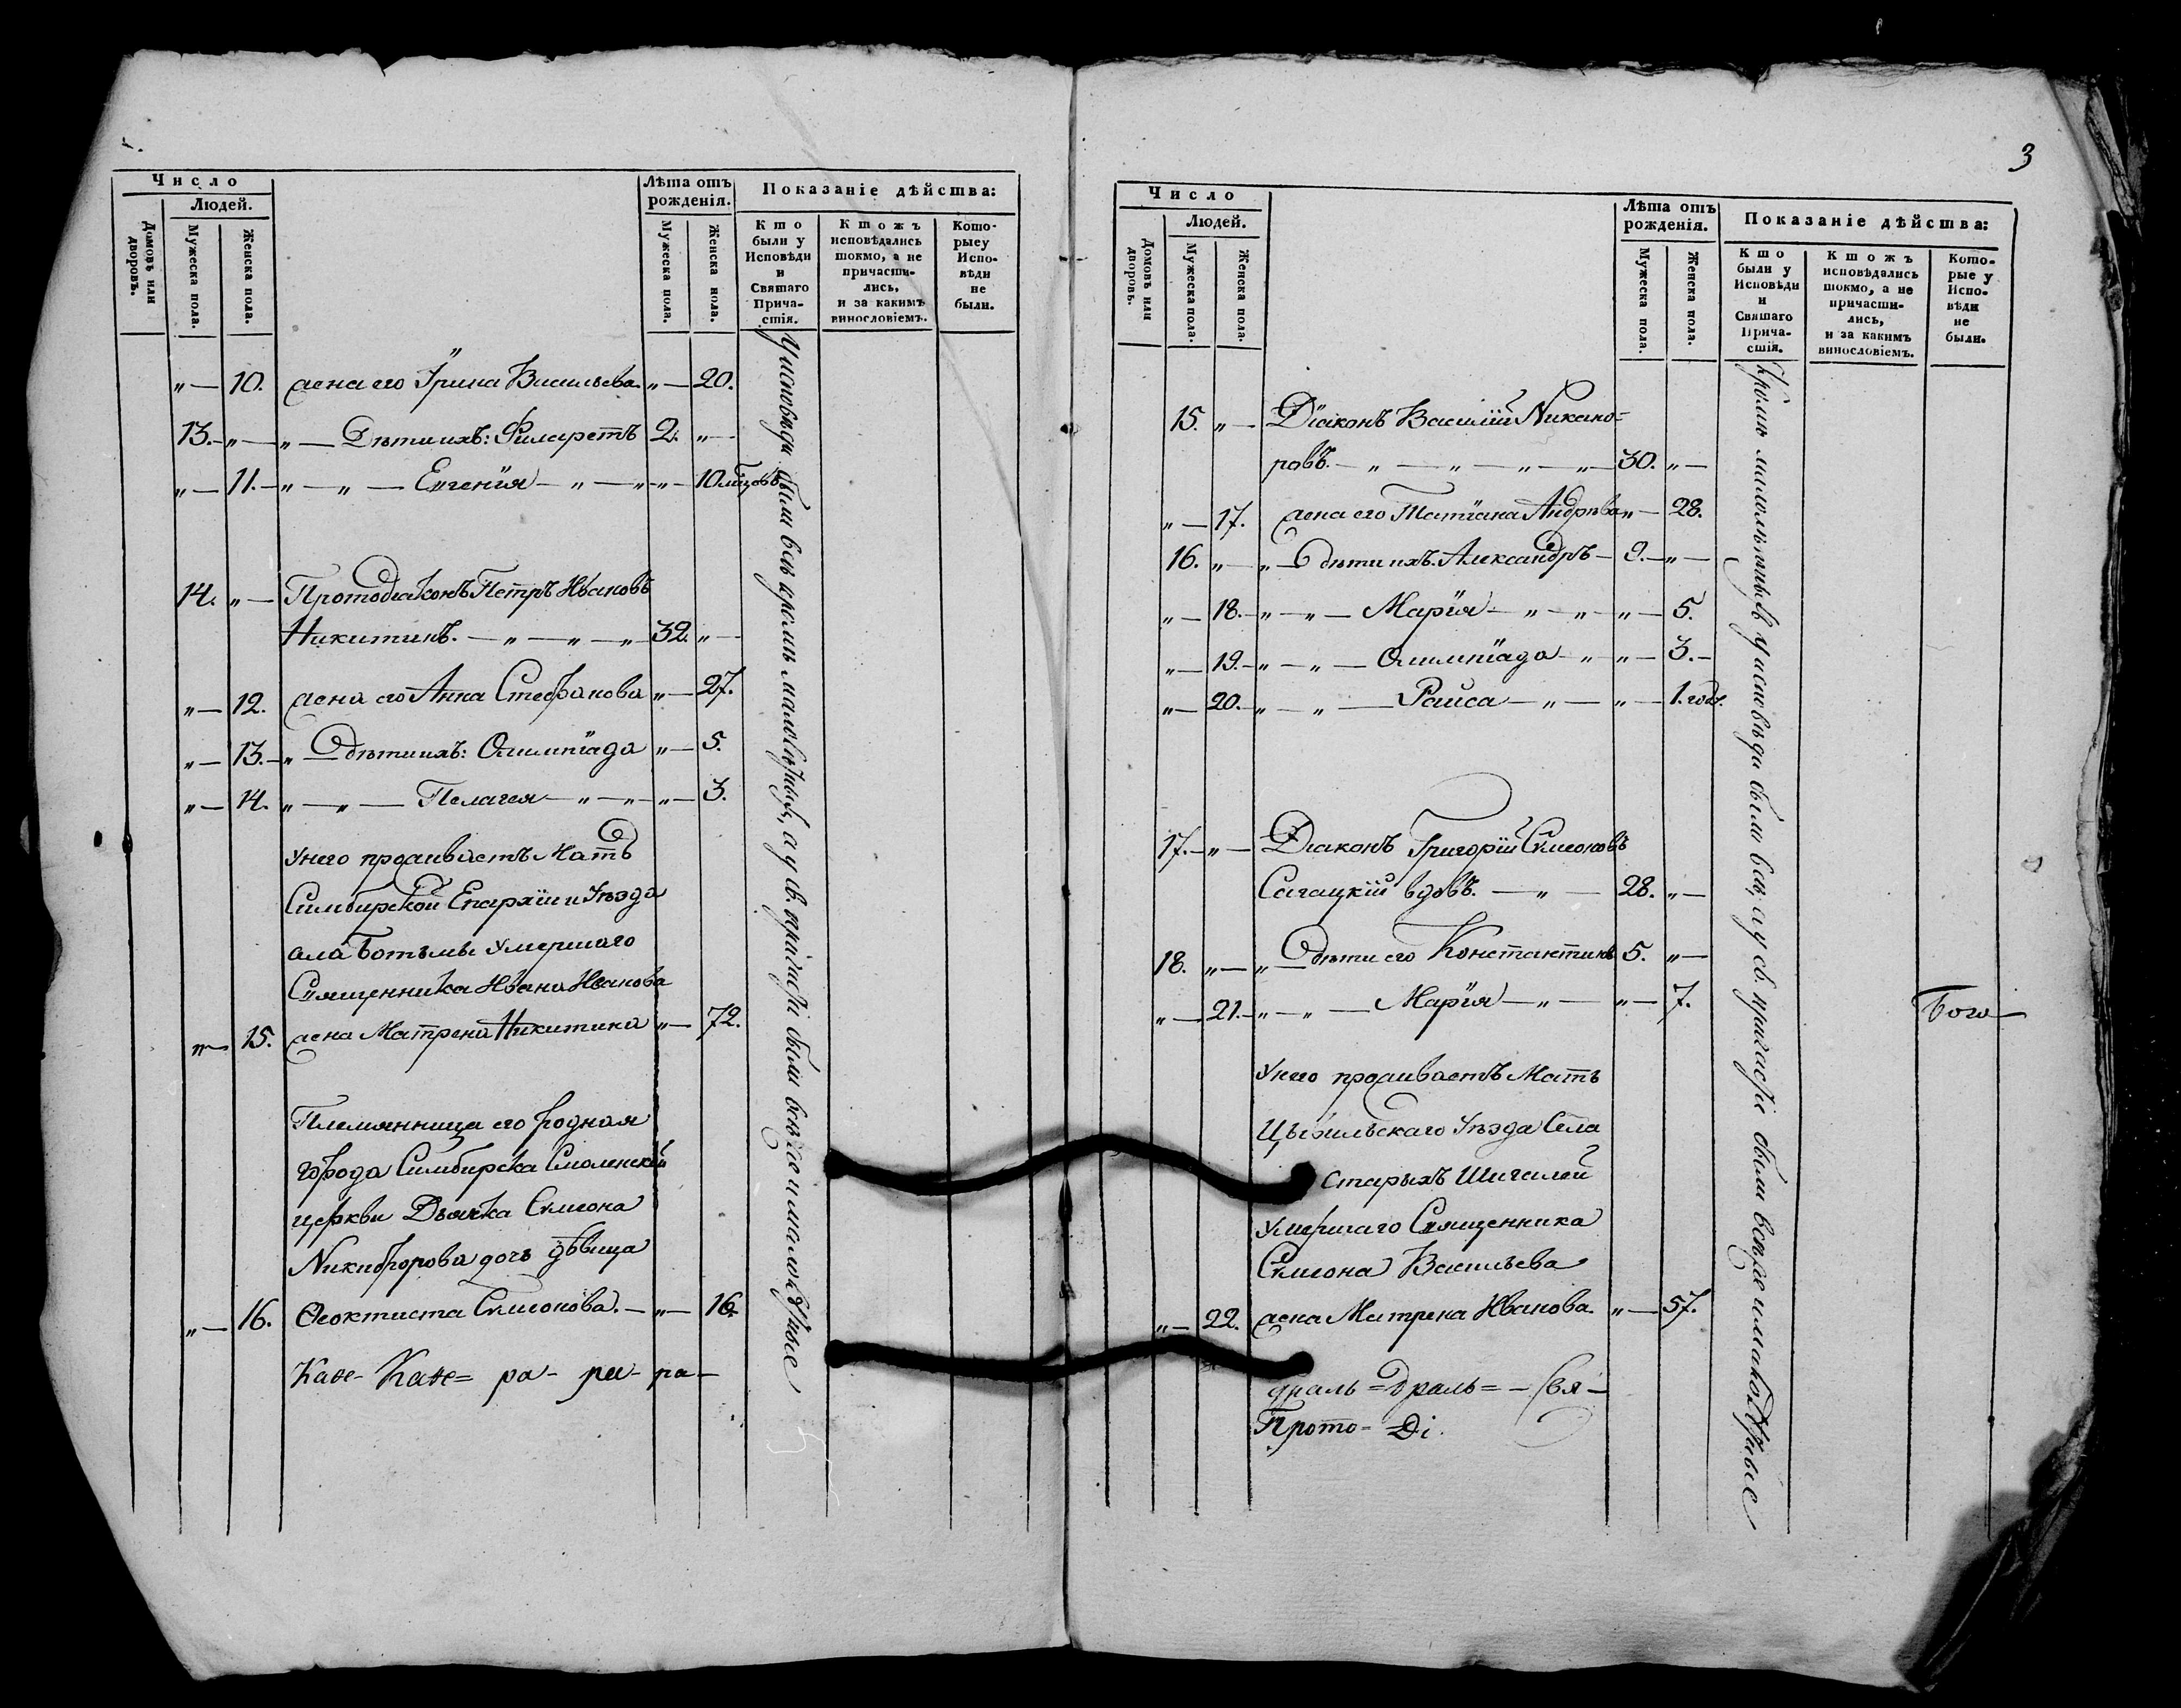 Число
Людей.
Домовъ или дворовъ.
Мужеска пола.
Женска пола.
Лѣта отъ рожденія.
Мужеска пола.
Женска пола.
Показаніе дѣйства:
Кто были у Исповѣди и Святаго Прича-стія.
Ктожъ исповѣдались токмо, а не причасти-лись, и за какимъ винословіемъ.
Кото-рые у Испо-вѣди не были.
„ — 10. жена его Ирина Васильева. „ — 20.
13. — „ — „ — Дѣти ихъ: Филаретъ 2. „ —
„ — 11. — „ — „ — Евгенія — „ — „ — „ — 10 мѣсцовъ
14. „ — Протодіаконъ Петръ Ивановъ
Никитинъ. — „ — „ — „ 32. „ —
„ — 12. жена его Анна Стефанова „ — 27.
„ — 13. — „ — Дѣти ихъ: Олимпіада „ — 5.
„ — 14. „ — „ — Пелагея — „ — „ — „ — 3.
У него проживаетъ Мать
Симбирской Епархіи и Уѣзда
села Ботьмы умершаго
Священника Ивана Иванова
„ — 15. жена Матрена Никитина „ — 72.
Племянница его родная
города Симбирска Смоленской
церкви Дьячка Симеона
Никифорова дочь дѣвица
„ — 16. Феоктиста Симеонова. — „ — 16.
Каѳе- Каѳе= ра- ра- ра —
У исповѣди были всѣ кромѣ малолѣтныхъ, а у св. причастія были всѣ же и малолѣтные
3
Число
Людей.
Домовъ или дворовъ.
Мужеска пола.
Женска пола.
Лѣта отъ рожденія.
Мужеска пола.
Женска пола.
Показаніе дѣйства:
Кто были у Исповѣди и Святаго Прича-стія.
Ктожъ исповѣдались токмо, а не причасти-лись, и за какимъ винословіемъ.
Кото-рые у Испо-вѣди не были.
15. „ — Діаконъ Василій Никано=
ровъ. — „ — „ — „ — „ — 30. „ —
„ — 17. жена его Татіана Андрѣева „ — 28.
16. „ — „ — Дѣти ихъ. Александръ — 9. — „ —
„ — 18. — „ — „ — Марія — „ — „ „ — 5.
„ — 19. — „ — „ — Олимпіада — „ „ — 3. —
„ — 20. — „ — „ — Раиса — „ — „ — 1. годъ.
17. — „ — Діаконъ Григорій Симеоновъ
Сагацкій вдовъ. — „ — 28. „ —
18. „ — „ — Дѣти его Константинъ 5. „ —
„ — 21. — „ — „ — Марія — „ — „ — 7.
Бого —
У него проживаетъ Мать
Цывильскаго Уѣзда Села
Старыхъ Шигалей
умершаго Священника
Симеона Васильева
„ — 22. жена Матрена Иванова. „ — 57.
драль = драль = — Свя —
Прото- Ді.
Кромѣ малолѣтныхъ у исповѣди были всѣ, а у св. причастія были всѣ же и малолѣтные